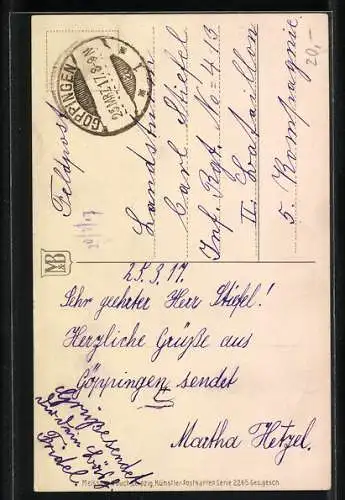 Feldpost
GÖPPINGEN
25.MRZ.17.8-9N.
* 1 *
Landsturm
Carl Stiefel
Inf. Rgt. No = 413
II. Bataillon
5. Kompagnie.
20,-
M&B
25.3.17.
Sehr geehrter Herr Stiefel!
Herzliche Grüße aus
Göppingen sendet
Martha Hetzel.
Grüße sendet
Friedel
Leipzig, Künstler-Postkarten Serie 2265 Ges.gesch.